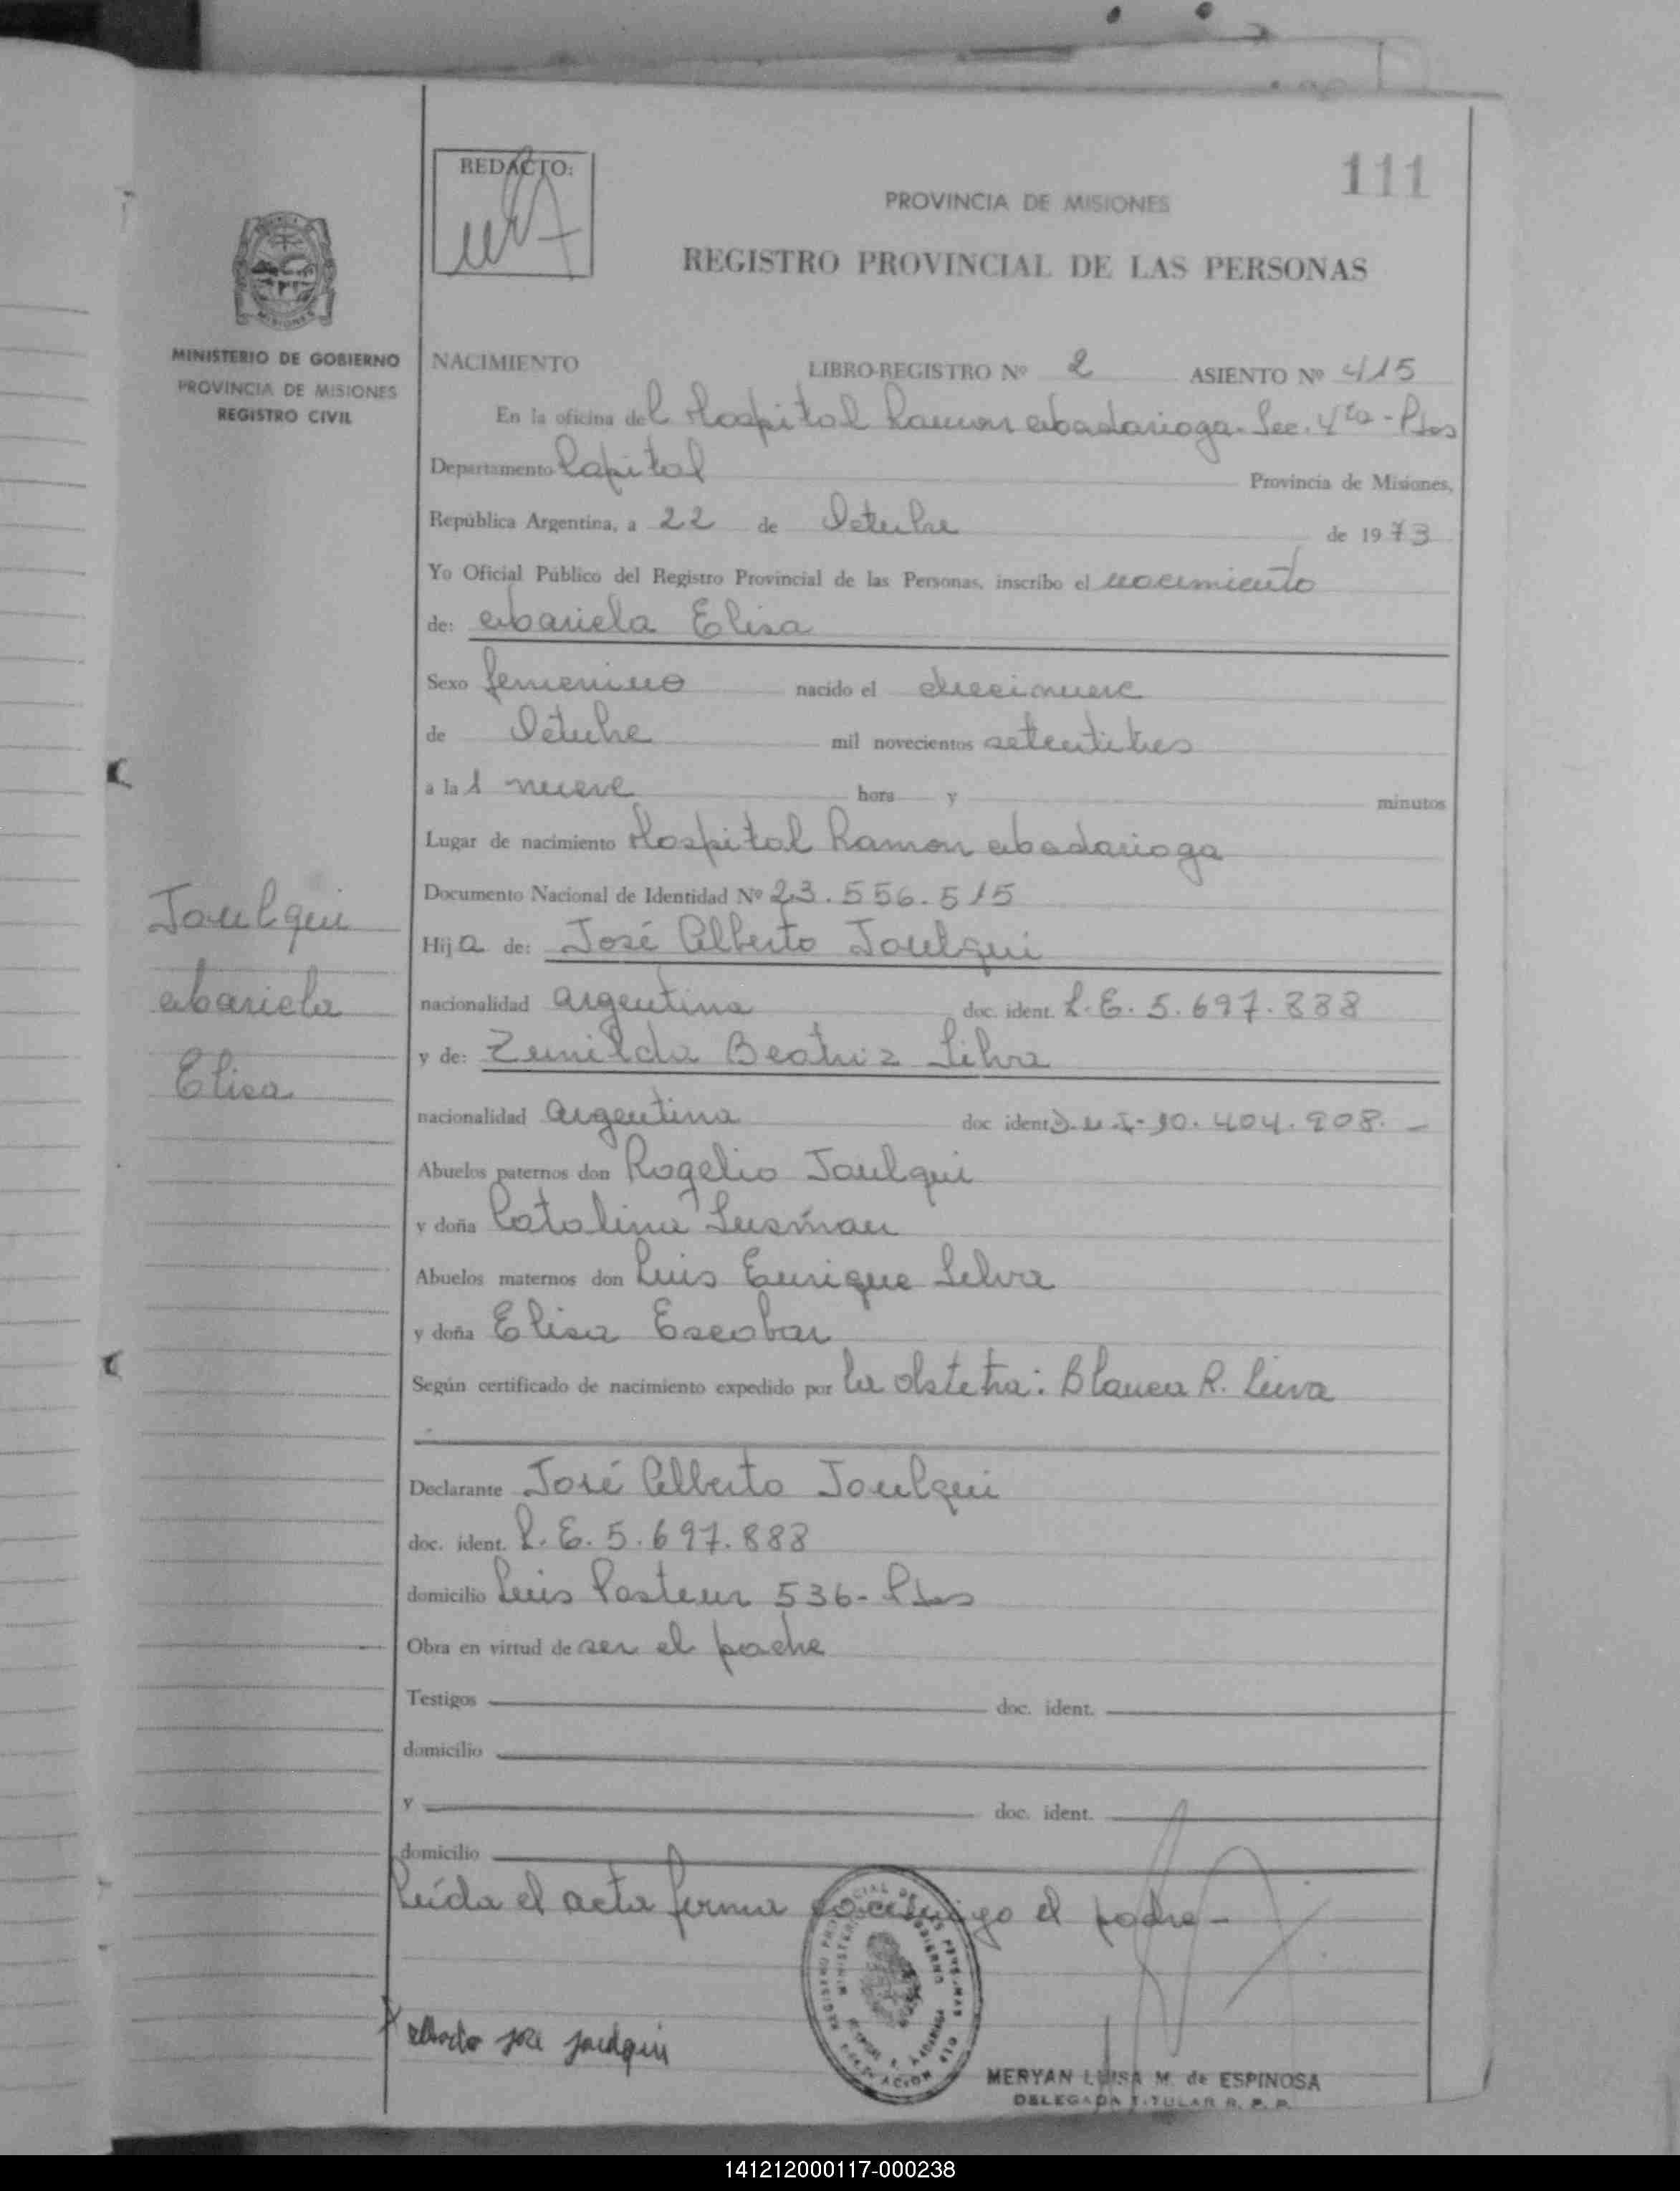 111
REDACTO:
PROVINCIA DE MISIONES
REGISTRO PROVINCIAL DE LAS PERSONAS
MINISTERIO DE GOBIERNO
PROVINCIA DE MISIONES
REGISTRO CIVIL
NACIMIENTO LIBRO-REGISTRO Nº 2 ASIENTO Nº 415
En la oficina del Hospital Ramon Madariaga - Sec. 4ta - Pdas
Departamento Capital Provincia de Misiones,
República Argentina, a 22 de Octubre de 1973
Yo Oficial Público del Registro Provincial de las Personas, inscribo el nacimiento
de: Mariela Elisa
Sexo femenino nacido el diecinueve
de Octubre mil novecientos setentitres
a las nueve hora y minutos
Lugar de nacimiento Hospital Ramon Madariaga
Documento Nacional de Identidad Nº 23.556.515
Hija de: José Alberto Joulqui
nacionalidad argentina doc. ident. L.E. 5.697.888
y de: Zunilda Beatriz Silva
nacionalidad argentina doc ident D.N.I- 10.404.908.-
Abuelos paternos don Rogelio Joulqui
y doña Catalina Susman
Abuelos maternos don Luis Enrique Silva
y doña Elisa Escobar
Según certificado de nacimiento expedido por la obstetra: Blanca R. Leiva
Declarante José Alberto Joulqui
doc. ident. L.E. 5.697.888
domicilio Luis Pasteur 536- Pdas
Obra en virtud de ser el padre
Testigos doc. ident.
domicilio
y doc. ident.
domicilio
Leída el acta firma conmigo el padre-
Joulqui
Mariela
Elisa
Alberto jose joulqui
MERYAN LUISA M. de ESPINOSA
DELEGADA TITULAR R. P. P.
141212000117-000238